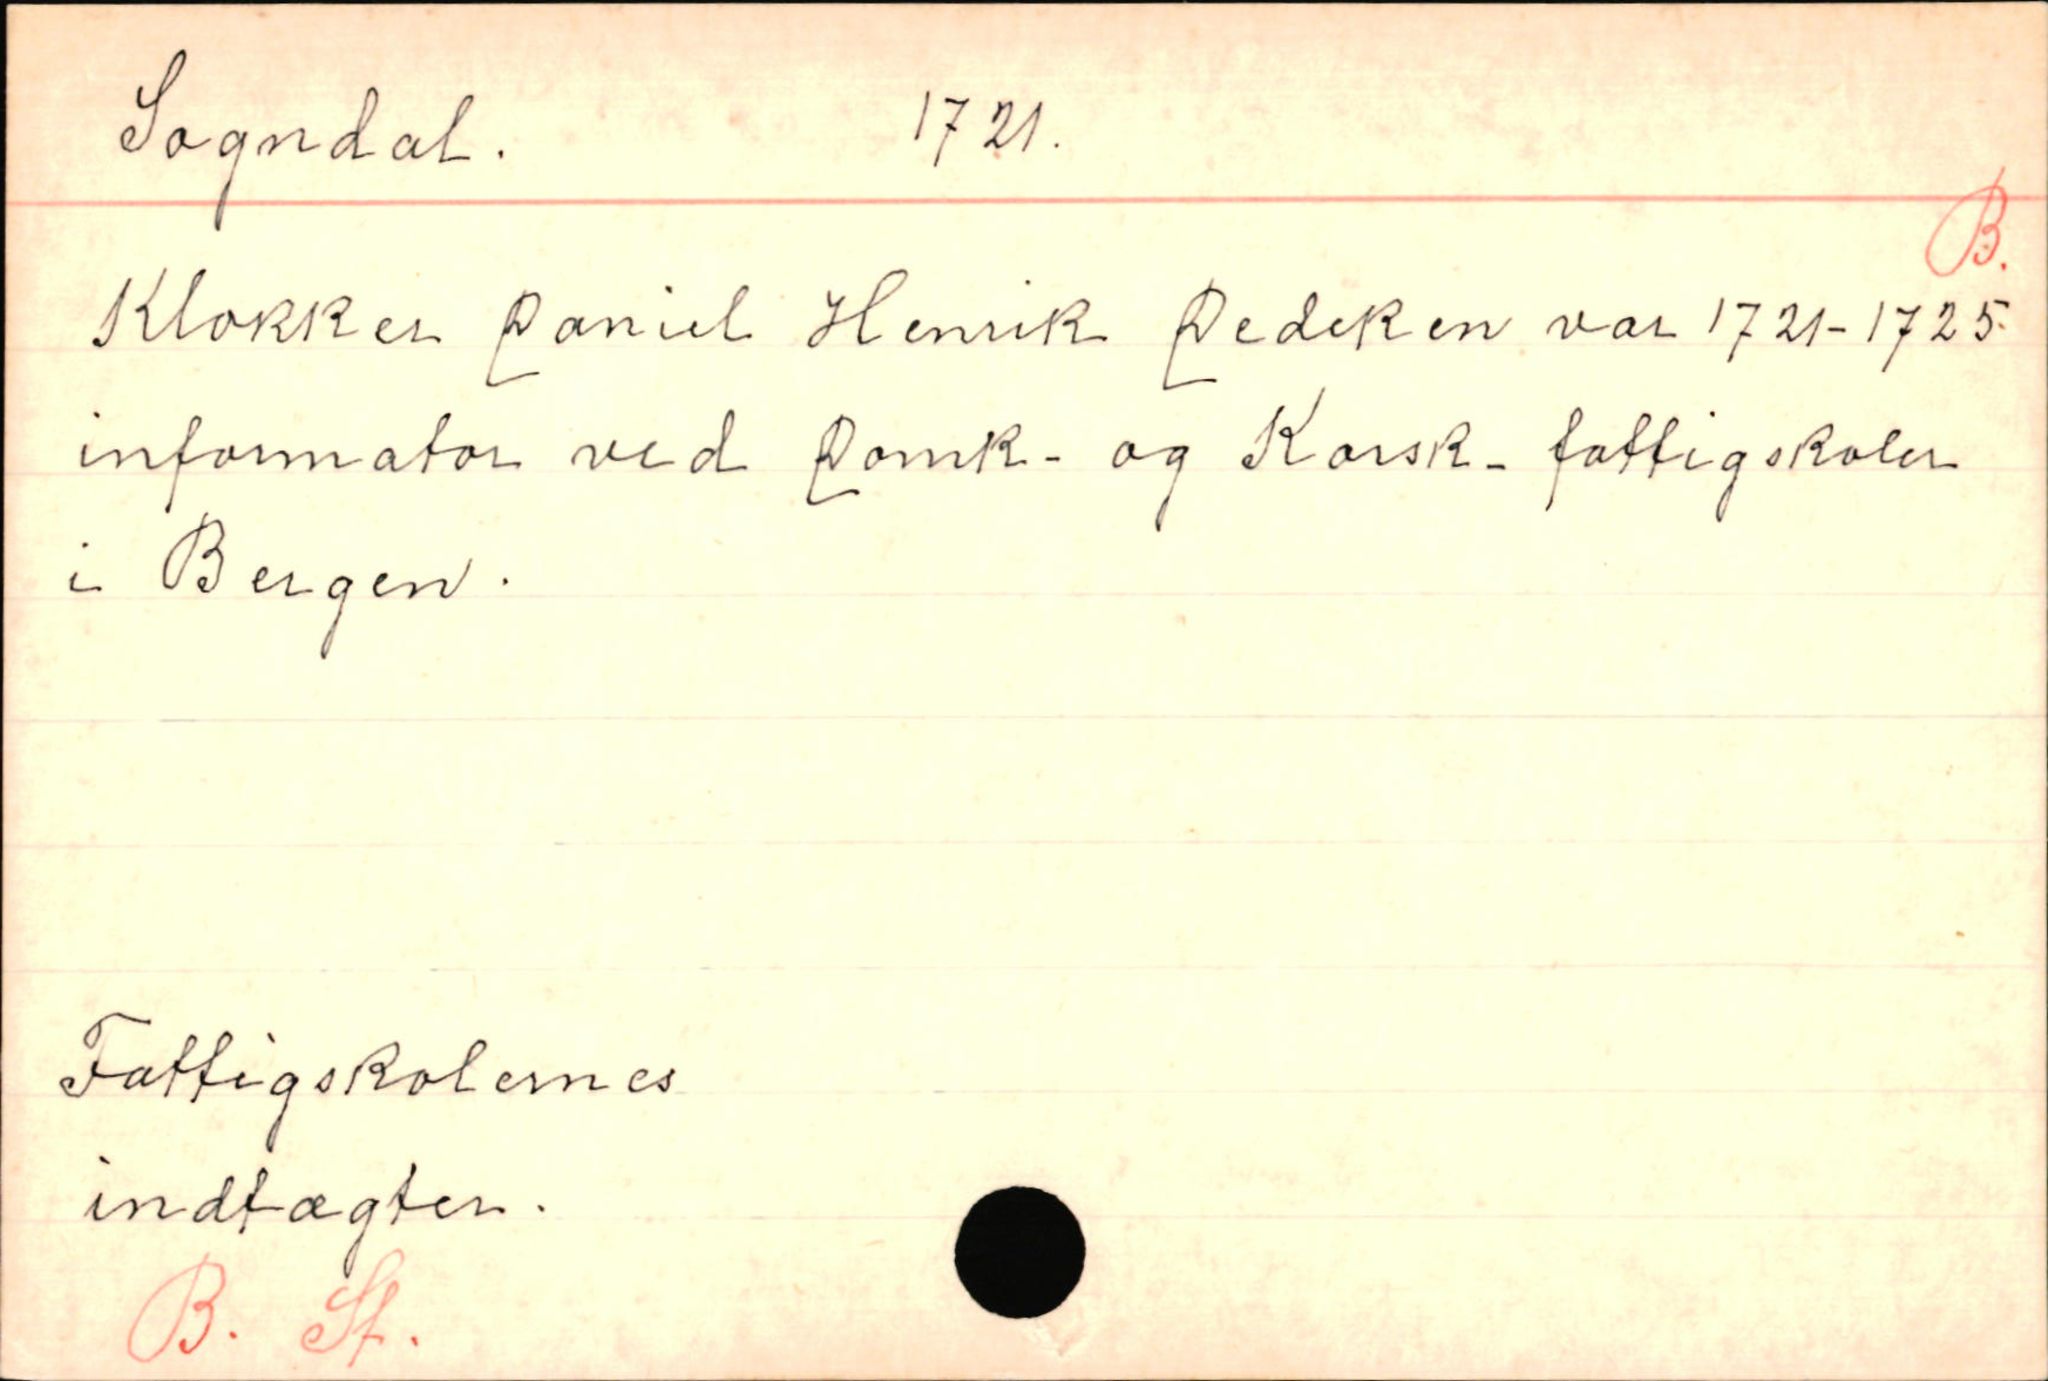 Sogndal. 1721.
B.
Klokker Daniel Henrik Dedeken var 1721-1725
informator ved Domk- og Korsk- fattigskoler
i Bergen.
Fattigskolernes
indtægter.
B. St.